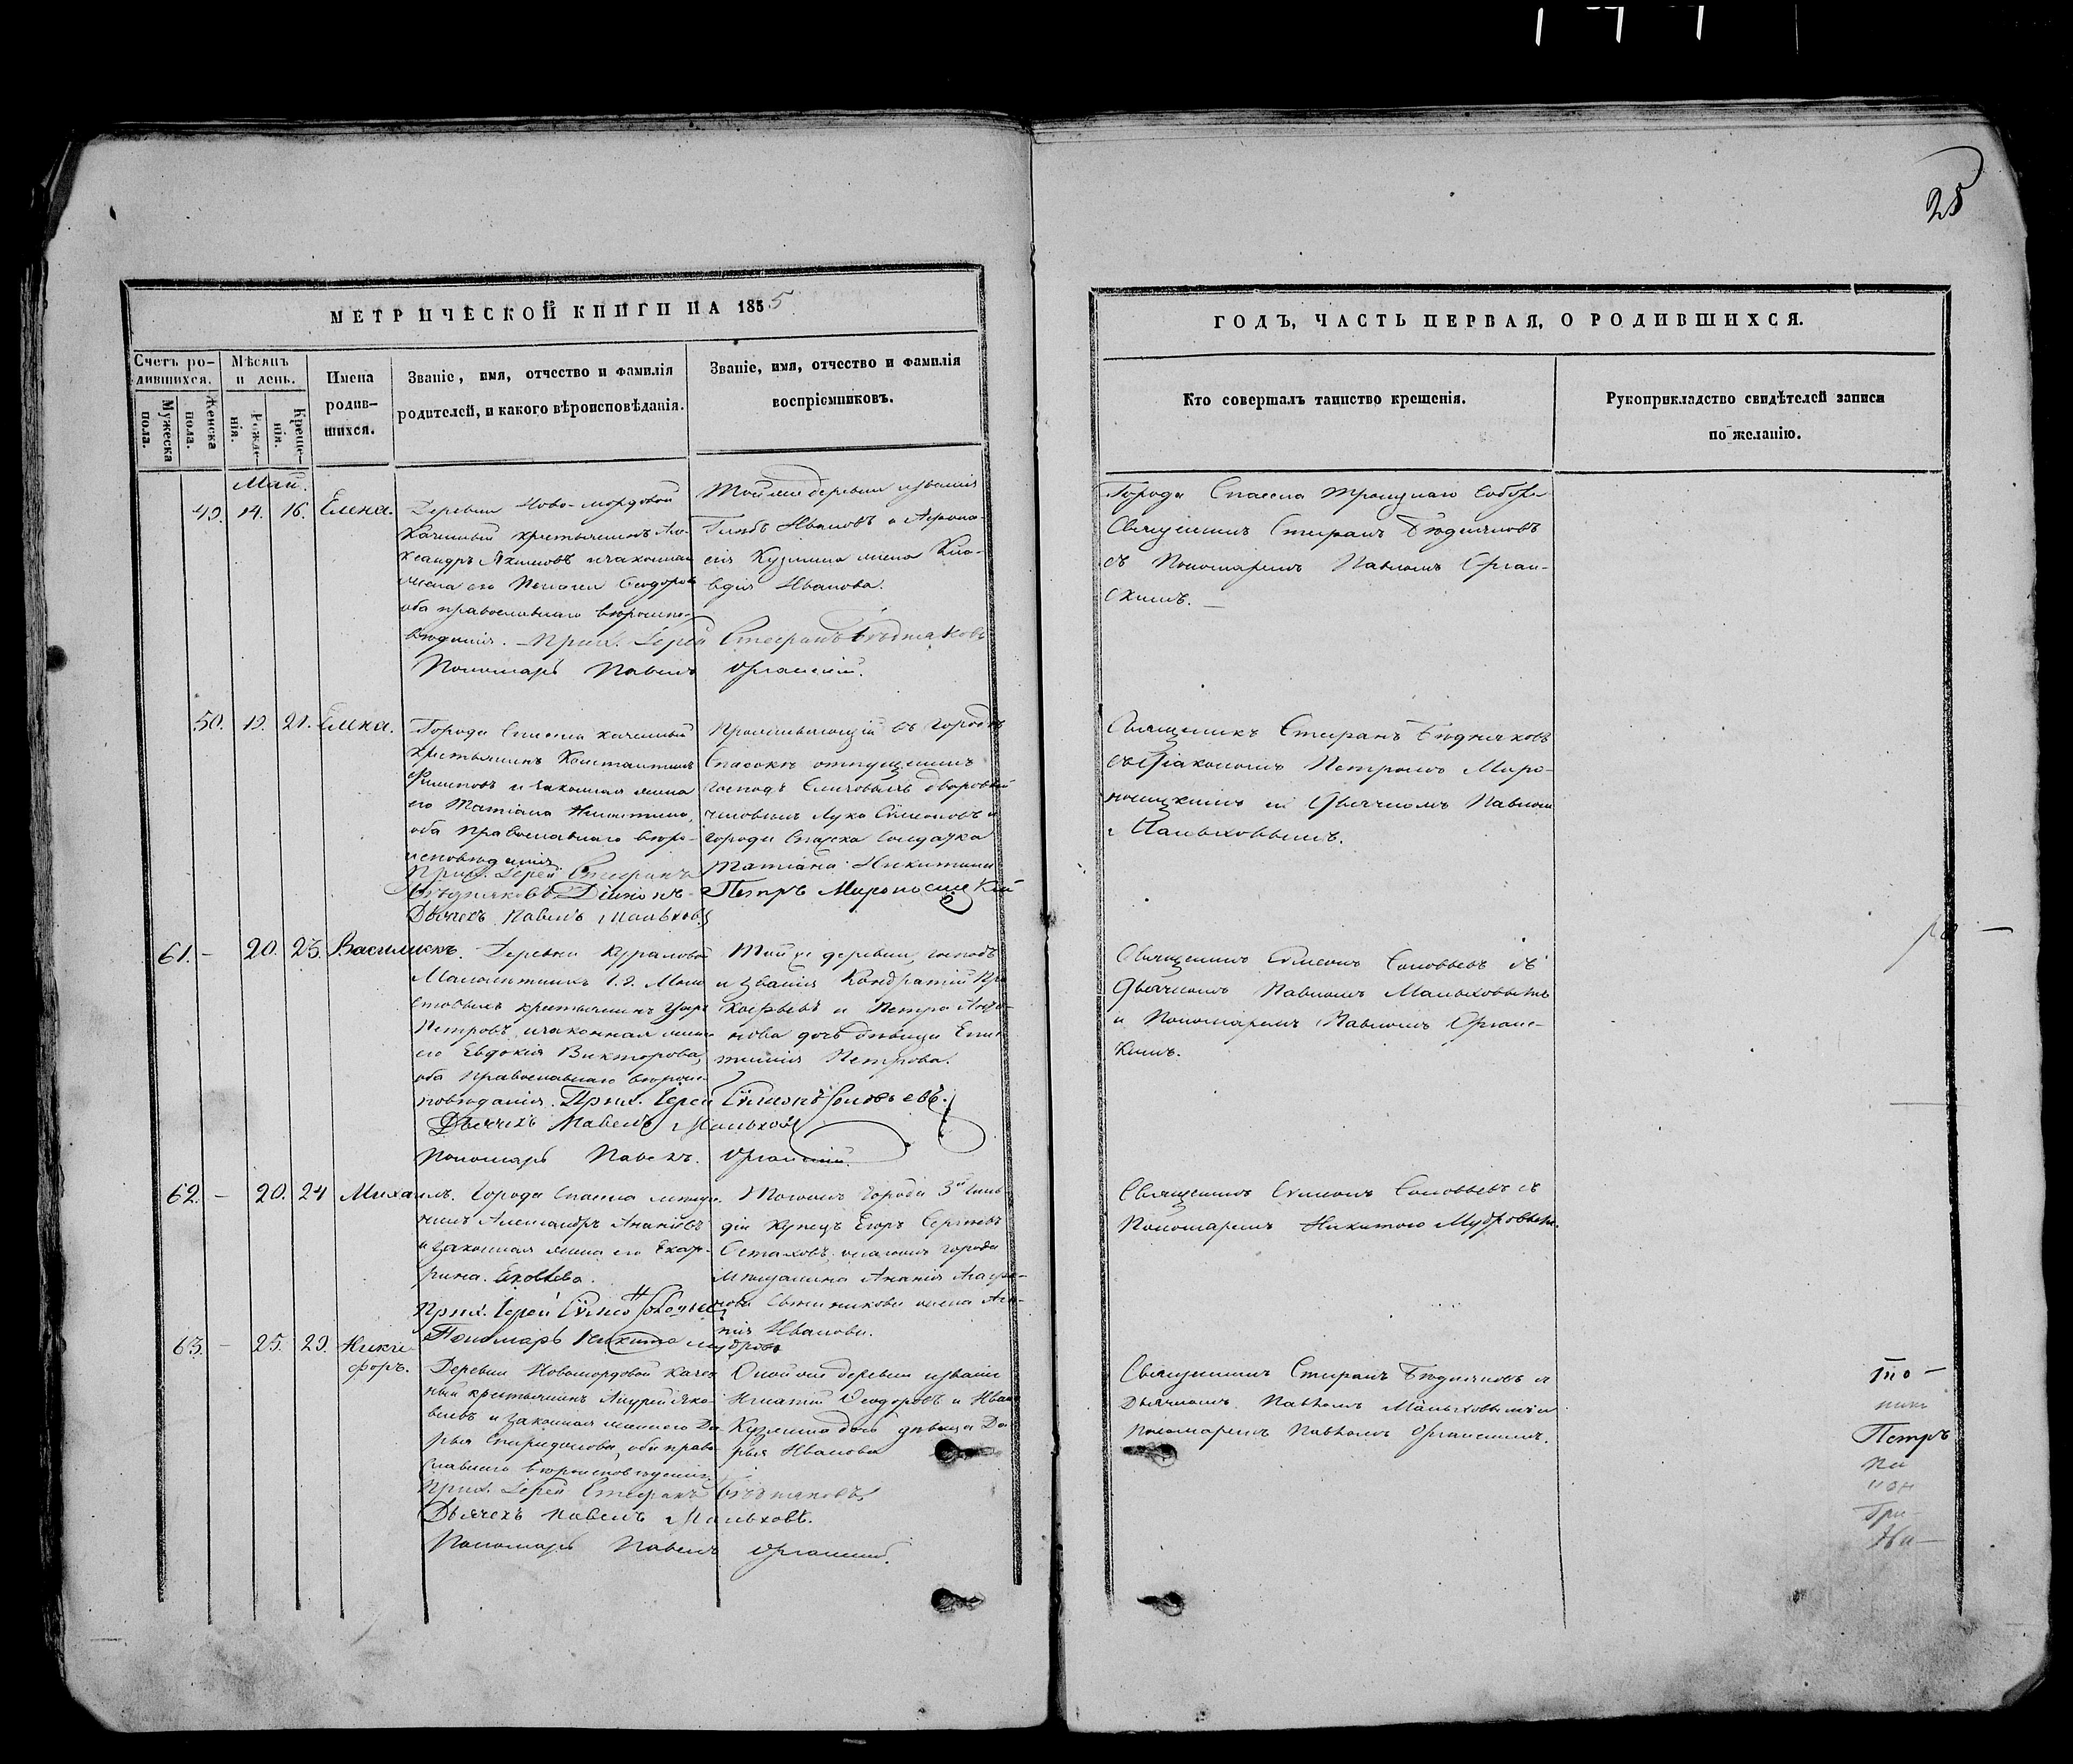 25
МЕТРИЧЕСКОЙ КНИГИ НА 1855
ГОДЪ, ЧАСТЬ ПЕРВАЯ, О РОДИВШИХСЯ.
Счетъ ро-
дившихся.
Мужеска
пола.
Женска
пола.
Мѣсяцъ
и день.
Рожде-
нія.
Креще-
нія.
Имена
родив-
шихся.
Званіе, имя, отчество и фамилія
родителей, и какого вѣроисповѣданія.
Званіе, имя, отчество и фамилія
воспріемниковъ.
Кто совершалъ таинство крещенія.
Рукоприкладство свидѣтелей записи
по желанію.
Май.
49. 14. 16. Елена.
Деревни Ново-мордовой
Казенный крестьянинъ Але-
ксандръ Якимовъ и законная
жена его Ѳеодорова
оба православнаго вѣроиспо-
вѣданія. Прих. Іерей Стефанъ Бѣдняковъ
Пономарь Павелъ Органскій.
Той же деревни и званія
Глебъ Ивановъ и Афона-
сія Кузмина жена Кла-
вдія Иванова.
Города Спасска Троицкаго Собора
Священникъ Стефанъ Бѣдняковъ
съ Пономаремъ Павломъ Орган-
скимъ.
50. 19. 21. Елена.
Города Спасска казенный
крестьянинъ Константинъ
Филиповъ и законная жена
его Татіана Никитина,
оба Православнаго вѣро-
исповѣданія.
Прих. Іерей Стефанъ
Бѣдняковъ Діаконъ Петръ Мироносицкій
Дьячекъ Павелъ Мальховъ
Проживающій въ городѣ
Спасскѣ отпущенный
господъ дворовый
человѣкъ Лука Симеоновъ и
города Спасска Солдатка
Татіана Никитина
Священникъ Стефанъ Бѣдняковъ
съ Діакономъ Петромъ Миро-
носицкимъ и Дьячкомъ Павломъ
Мальховымъ.
61. – 20. 23. Василискъ.
Деревни Кураловой
крестьянинъ
Петровъ, и законная жена
его Евдокія Викторова,
оба Православнаго вѣроис-
повѣданія. Прих. Іерей Симеонъ Соловьевъ.
Дьячекъ Павелъ Мальховъ
Пономарь Павелъ Органскій.
Той же деревни, господъ
и званія Кондратій Про-
кофьевъ и Петра
нова дочь дѣвица
Петрова.
Священникъ Симеонъ Соловьевъ съ
Дьячкомъ Павломъ Мальховымъ
и Пономаремъ Павломъ Органс-
кимъ.
62. – 20. 24 Михаилъ.
Города Спасска мѣща-
нинъ Александръ Ананьевъ
и законная жена его Екате-
рина Яковлева.
Прих. Іерей Симеонъ Соловьевъ
Пономарь Никита Мудровъ
Тогожъ города 3й гиль-
діи Купецъ Егоръ Сергѣевъ
Остаховъ города
мѣщанина Ананія
жена
Иванова.
Священникъ Симеонъ Соловьевъ съ
Пономаремъ Никитою Мудровымъ.
63. – 25. 29. Ники-
форъ.
Деревни Новомордовой казен-
ный крестьянинъ Андрей Яко-
влевъ и законная жена его Да-
рья Спиридонова, оба право-
славнаго вѣроисповѣданія.
Прих. Іерей Стефанъ Бѣдняковъ
Дьячекъ Павелъ Мальховъ.
Пономарь Павелъ Органскій.
Оной же деревни и званія
Игнатій Ѳеодоровъ и Ивана
Кузмина дочь дѣвица Да-
рья Иванова
Священникъ Стефанъ Бѣдняковъ съ
Дьячкомъ Павломъ Мальховымъ и
Пономаремъ Павломъ Органскимъ.
Петръ